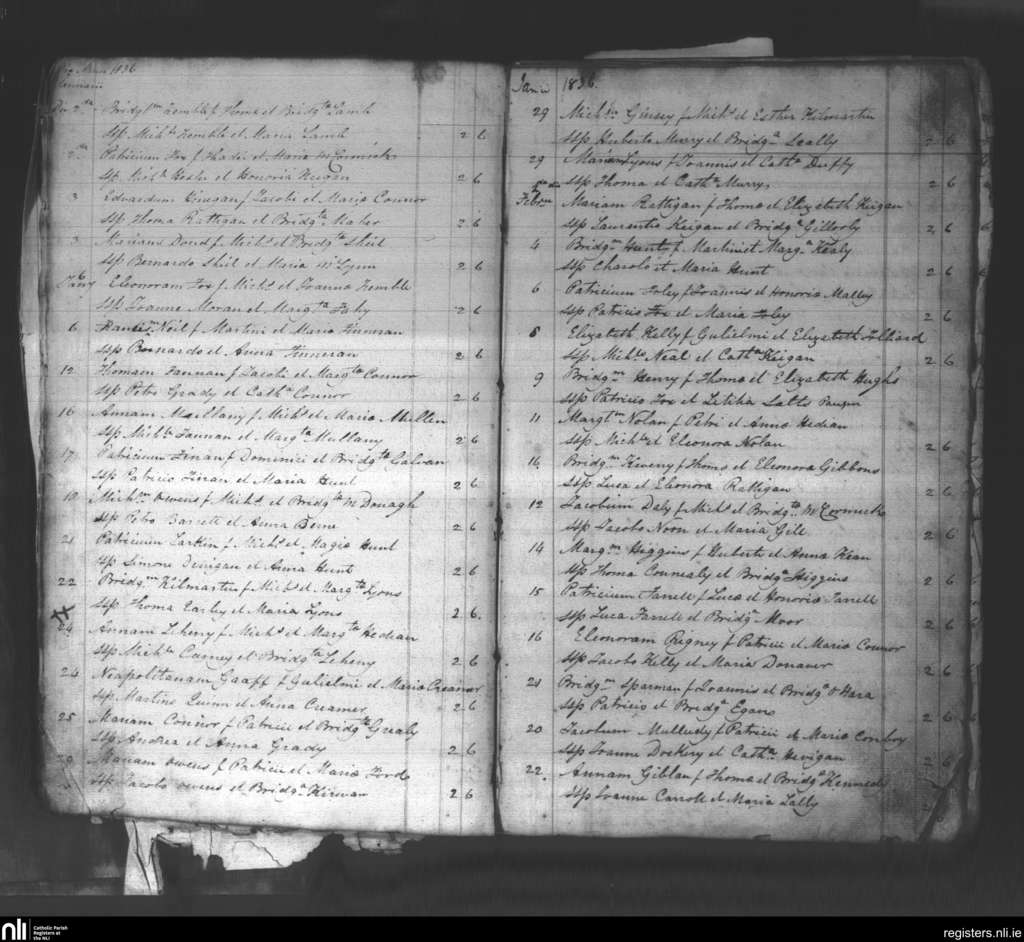 1836
2nd Bridgtm Kemble f Thoma et Bridgta Lamb
ssp Michle Kemble et Maria Lamb 2 6
2nd Patricium Fox f Thadei et Maria McCormick
sp Michle Hester et Honoria Keegan 2 6
3 Edvardum Kinegan f Jacobi et Maria Connor
ssp Thoma Rattigan et Bridgta Maher 2 6
3 Mariam Doud f Michs et Bridgta Sheil
ssp Bernardo Shiel et Maria McLynn 2 6
6 Jany Eleonoram Fox f Michs et Joanna Kemble
ssp Joanne Moran et Margta Fahy 2 6
6 Neil f Martini et Maria Finneran
ssp Bernardo et Anna Finneran 2 6
12 Thomam Fannan f Jacobi et Margta Connor
ssp Petro Grady et Catha Connor 2 6
16 Annam Mullany f Michs et Maria Mullen
ssp Michle Fannan et Margta Mullany 2 6
17 Patricium Finan f Dominici et Bridgta Galvan
ssp Patricio Finan et Maria Hunt 2 6
19 Michm Owens f Michs et Bridgta McDonagh
ssp Petro Barrett et Anna Berne 2 6
21 Patricium Larkin f Michs et Magia Hunt
ssp Simone Dinigan et Anna Hunt 2 6
22 Bridgm Kilmartin f Michs et Margta Lyons
ssp Thoma Earley et Maria Lyons 2 6
24 Annam Leheny f Michs et Margta Hedian
ssp Michle Carney et Bridgta Leheny 2 6
24 Neapolitanam Gaaff f Gulielmi et Maria Creamer
ssp Martino Quinn et Anna Creamer 2 6
25 Mariam Connor f Patricii et Bridgta Grealy
ssp Andrea et Anna Grady 2 6
29 Mariam Owens f Patricii et Maria Forde
ssp Jacobo Owens et Bridga Kirwan 2 6
1836
29 Michm f Michs et Esther Kilmartin
ssp Huberto Murry et Bridga Leally 2 6
29 Mariam Lyons f Joannis et Catha Duffy
ssp Thoma et Catha Murry 2 6
Mariam Rattigan f Thoma et Elizabeth Keigan
ssp Laurentio Keigan et Bridga Gillooly 2 6
4 Bridgm Hunt f Martini et Marga Healy
ssp Charolo et Maria Hunt 2 6
6 Patricium Foley f Joannis et Honoria Malley
ssp Patricio Fox et Maria Foley 2 6
8 Elizabeth Kelly f Gulielmi et Elizabeth Folliard
ssp Michle Neal et Catha Keigan 2 6
9 Bridgm Henry f Thoma et Elizabeth Hughs
ssp Patricio Fox et Letitia
11 Margtm Nolan f Petri et Anna Hedian
ssp Michle et Eleonora Nolan 2 6
16 Bridgm Kiveny f Thoma et Eleonora Gibbons
ssp Luca et Elionora Rattigan 2 6
12 Jacobum Daly f Michs et Bridgta McCormick
ssp Jacobo Noon et Maria Gill 2 6
14 Margm Higgins f Huberti et Anna Kean
ssp Thoma Connealy et Bridga Higgins 2 6
15 Patricium Farrell f Luca et Honoria Farrell
ssp Luca Farrell et Bridga Moor 2 6
16 Eleonoram Rigney f Patricii et Maria Connor
ssp Jacobo Kelly et Maria Donaver 2 6
21 Bridgm Sparman f Joannis et Bridga O Hara
ssp Patricio et Bridga Egan 2 6
20 Jacobum Mulledy f Patricii et Maria Conboy
ssp Joanne Dockery et Catha Hevigan 2 6
22 Annam Giblan f Thoma et Bridga Kennedy
ssp Joanne Carroll et Maria Lally 2
nli
Catholic Parish
Registers at
the NLI
registers.nli.ie